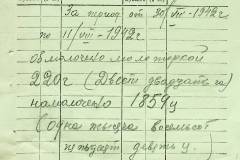 За период от 30/VII-1942г
по 11/VIII-1942г.
обмолочено молотилкой
220 г (Двести двадцать га)
намолочено 1859 ц
(одна тысяча восемьсот
пятьдесят девять ц.